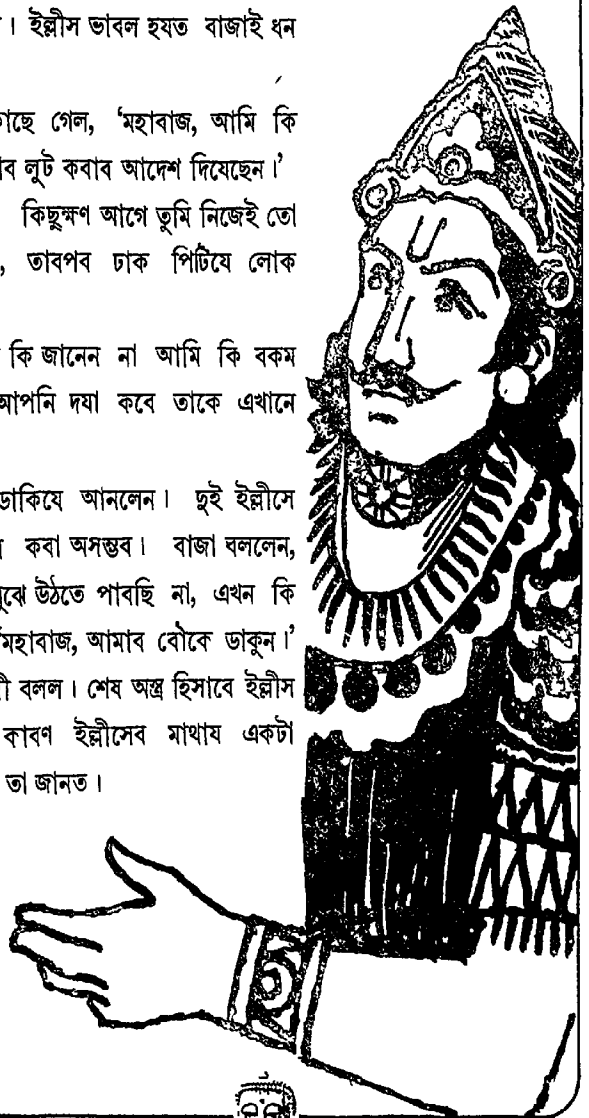 । ইল্লীস ভাবল হযত বাজাই ধন
গেল, ‘মহাবাজ, আমি কি
লুট কবাব আদেশ দিযেছেন।’
কিছুক্ষণ আগে তুমি নিজেই তো
, তাবপব ঢাক পিটিযে লোক
কি জানেন না আমি কি বকম
আপনি দযা কবে তাকে এখানে
ডাকিযে আনলেন। দুই ইল্লীসে
কবা অসম্ভব। বাজা বললেন,
উঠতে পাবছি না, এখন কি
‘মহাবাজ, আমাব বৌকে ডাকুন।’
বলল। শেষ অস্ত্র হিসাবে ইল্লীস
কাবণ ইল্লীসেব মাথায একটা
তা জানত।